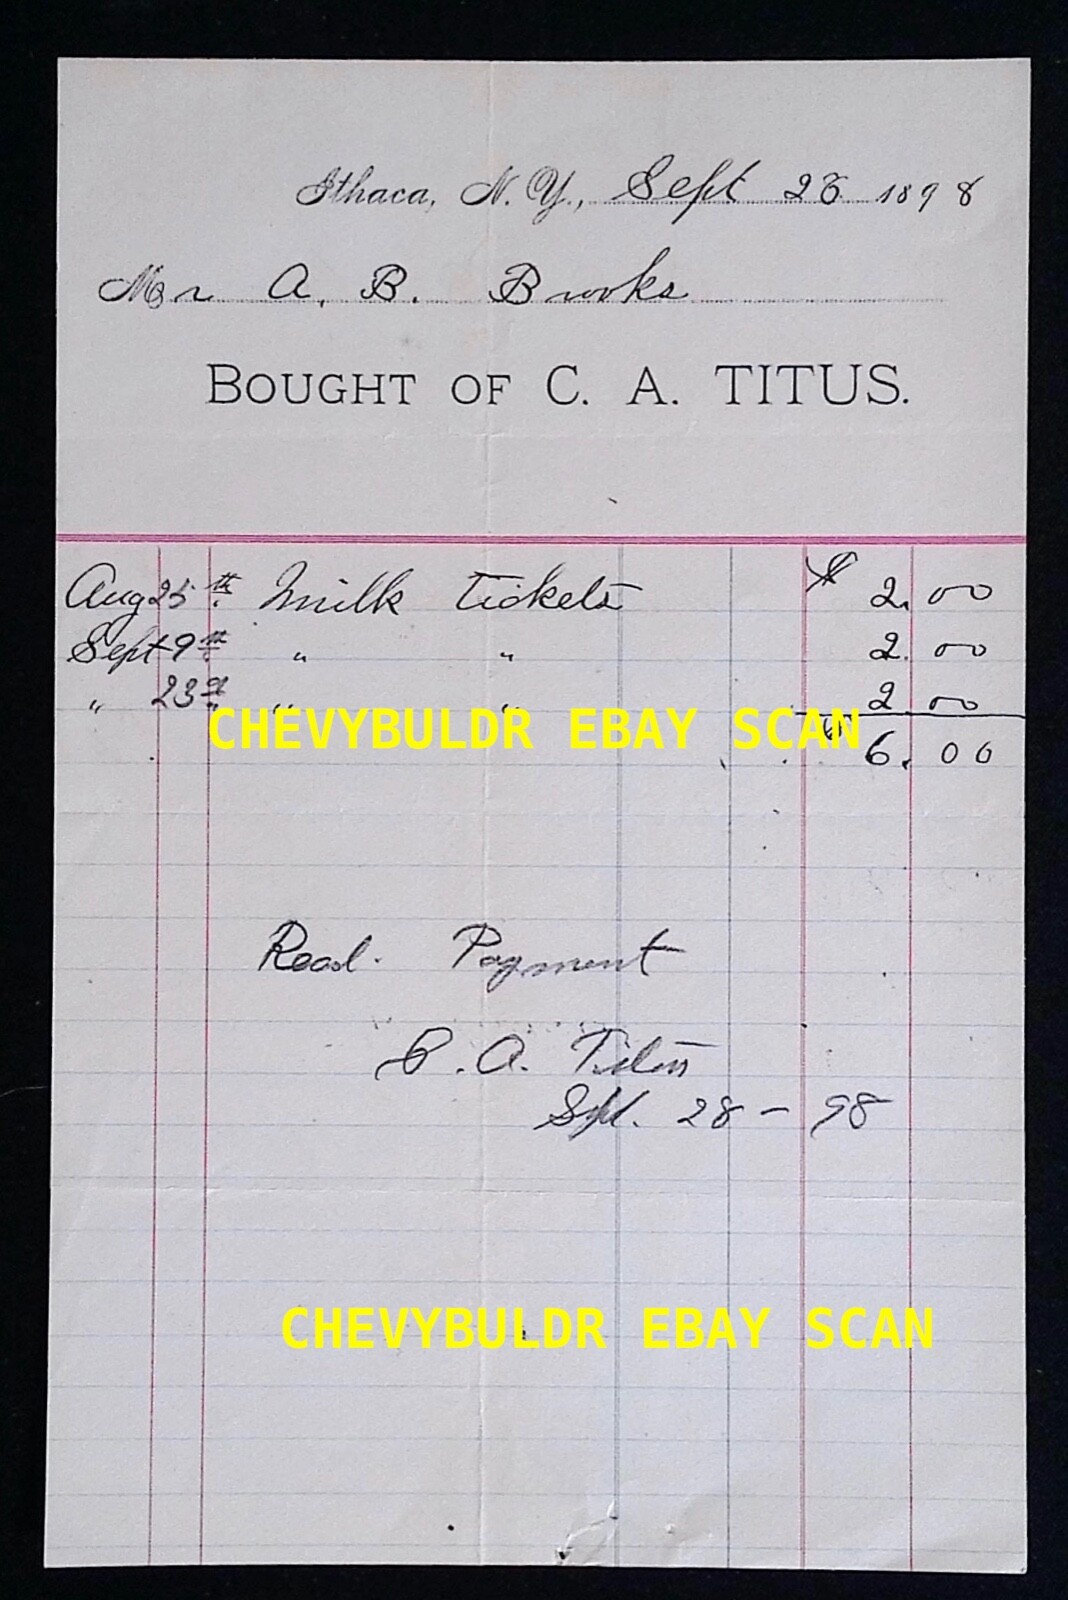 Ithaca, N. Y., Sept 1898
Mr A. B. Brooks
BOUGHT OF C. A. TITUS.
Aug 25th Milk tickets $ 2.00
Sept 9th " " 2.00
" 23d " " 2 00
CHEVYBULDR EBAY SCAN
$ 6.00
Recd. Payment
C. A. Titus
Spt. 28 - 98
CHEVYBULDR EBAY SCAN